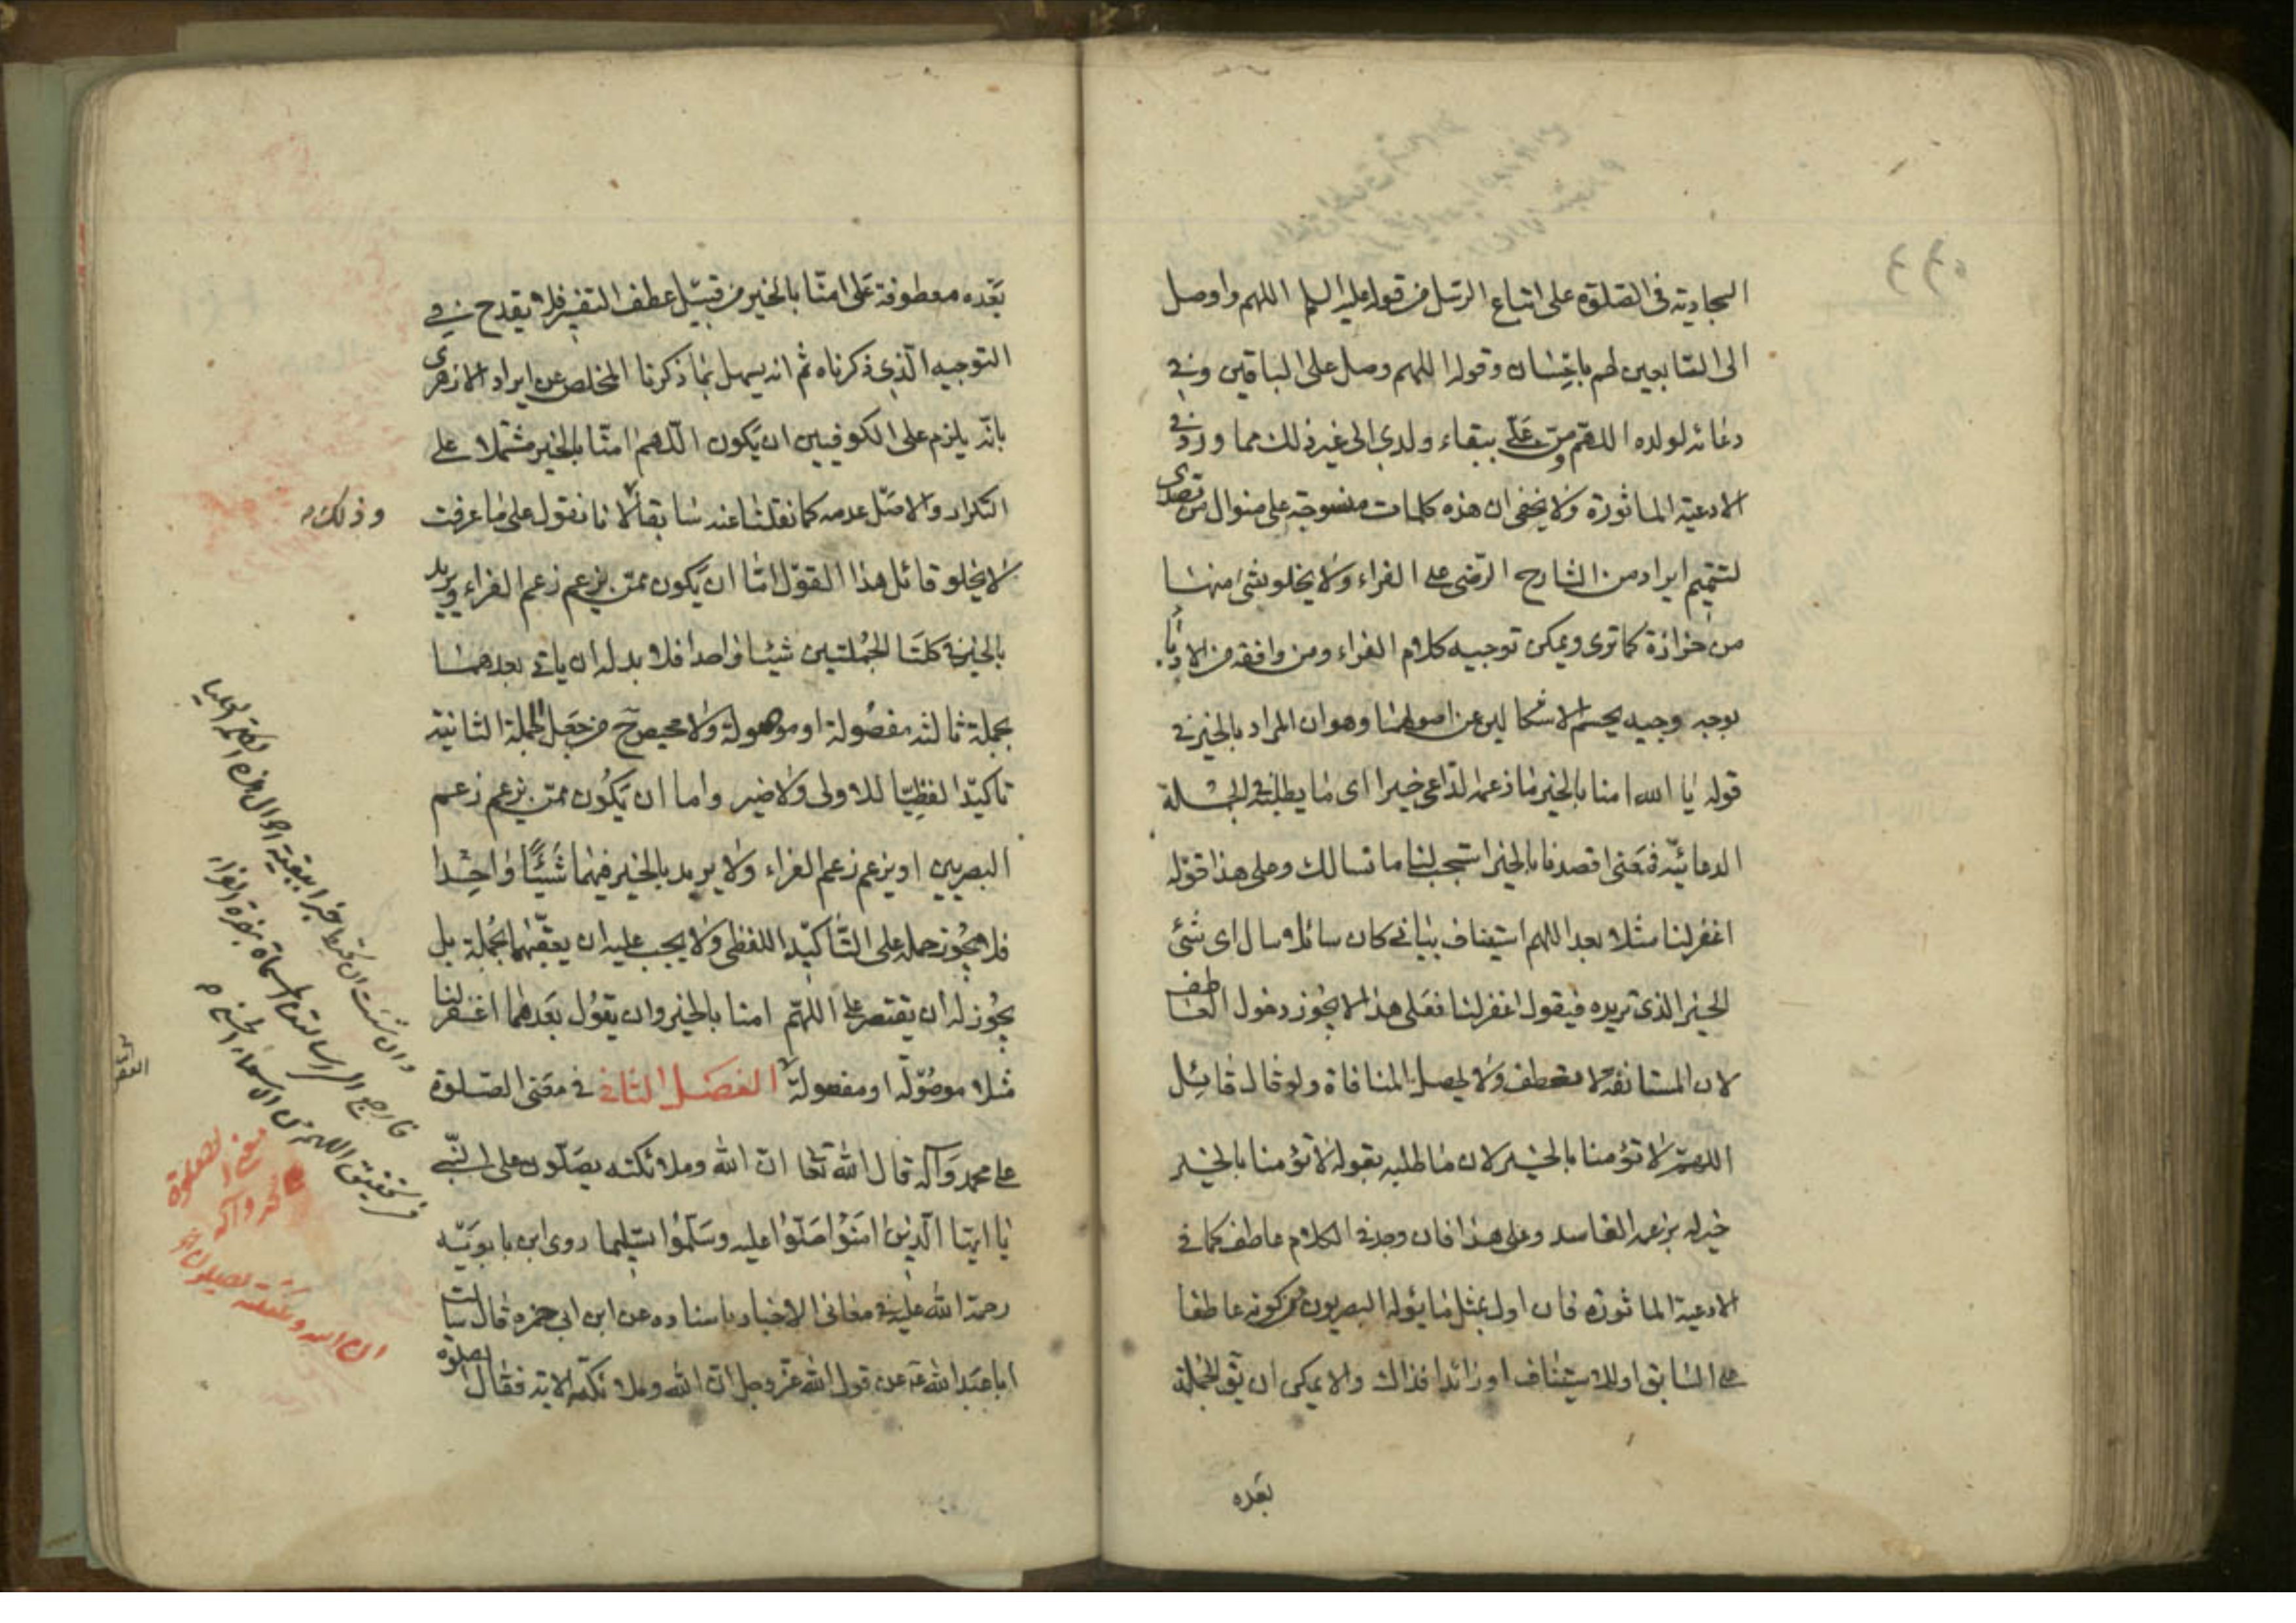 السجادية في الصلوة على اتباع الرسل من قوله عليه السلم اللهم واوصل
الى التابعين لهم باحسان وقوله اللهم وصل على التابعين وفي
دعائه لولده اللهم ومن علي ببقاء ولدي الى غير ذلك مما ورد في
الادعية الماثورة ولا يخفى ان هذه كلمات منسوجة على منوال من تصدى
لتتميم ايراد من الشارح الرضى على الفراء ولا يخلو شئ منها
من حزازة كما ترى ويمكن توجيه كلام الفراء ومن وافقه من الادباء
بوجه وجيه يحسم الاشكالين عن اصولهما وهو ان المراد بالخير في
قوله يا الله امنا بالخير ما زعمه الداعي خيرا اى ما يطلبه في الجملة
الدعائية فمعنى اقصدنا بالخير استجب لنا ما نسالك وعلى هذا قوله
اغفر لنا مثلا بعد اللهم استيناف بياني كان سائلا سال اى شئ
الخير الذي تريده فيقول اغفر لنا فعلى هذا لا يجوز دخول العاطف
لان المستانفة لا تعطف ولا يحصل المنافاة ولو قال قائل
اللهم لا تؤمنا بالخير لان ما طلبه بقوله لا تؤمنا بالخير
خير له بزعمه الفاسد وعلى هذا فان وجد في الكلام عاطف كما في
الادعية الماثورة فان اول بمثل ما يؤله البصريون من كونه عاطفا
على السابق او للاستيناف او زائدا فذاك والا يمكن ان يق الجملة
بعده
بعده معطوفة على امنا بالخير من قبيل عطف التفسير فلا يقدح في
التوجيه الذي ذكرناه ثم انه يسهل بما ذكرنا المخلص عن ايراد الازهرى
بانه يلزم على الكوفيين ان يكون اللهم امنا بالخير مشتملا على
التكرار والاصل عدمه كما نقلناعنه سابقا لانا نقول على ما عرفت
وذلك
لا يخلو قائل هذا القول اما ان يكون ممن يزعم زعم الفراء ويريد
بالخير في كلتا الجملتين شيئا واحدا فلا بد له ان ياتي بعدهما
بجملة ثالثه مفصولة او موصولة ولا محيص ح من جعل الجملة الثانية
تاكيدا لفظيا للاولى ولا ضير واما ان يكون ممن يزعم زعم
البصريين او يزعم زعم الفراء ولا يريد بالخير فيهما شيئا واحدا
فلا يجوز حمله على التاكيد اللفظى ولا يجب عليه ان يعقبهما بجملة بل
يجوز له ان يقتصر على اللهم امنا بالخير وان يقول بعدهما اغفر لنا
مثلا موصولة او مفصولة الفصل الثاني في معنى الصلوة
على محمد وآله قال الله تعا ان الله وملائكته يصلون على النبي
يا ايها الذين امنوا صلوا عليه وسلموا تسليما روى ابن بابويه
رحمة الله عليه في معاني الاخبار باسناده عن ابن ابي حمزة قال سالت
ابا عبد الله ع عن قول الله عز وجل ان الله وملائكته الاية فقال الصلوة
وان شئت ان
فارجع الى
معنى الصلوة
محمد وآله
ان الله وملائكته يصلون